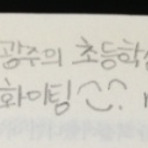 광주의 초등학
화이팅